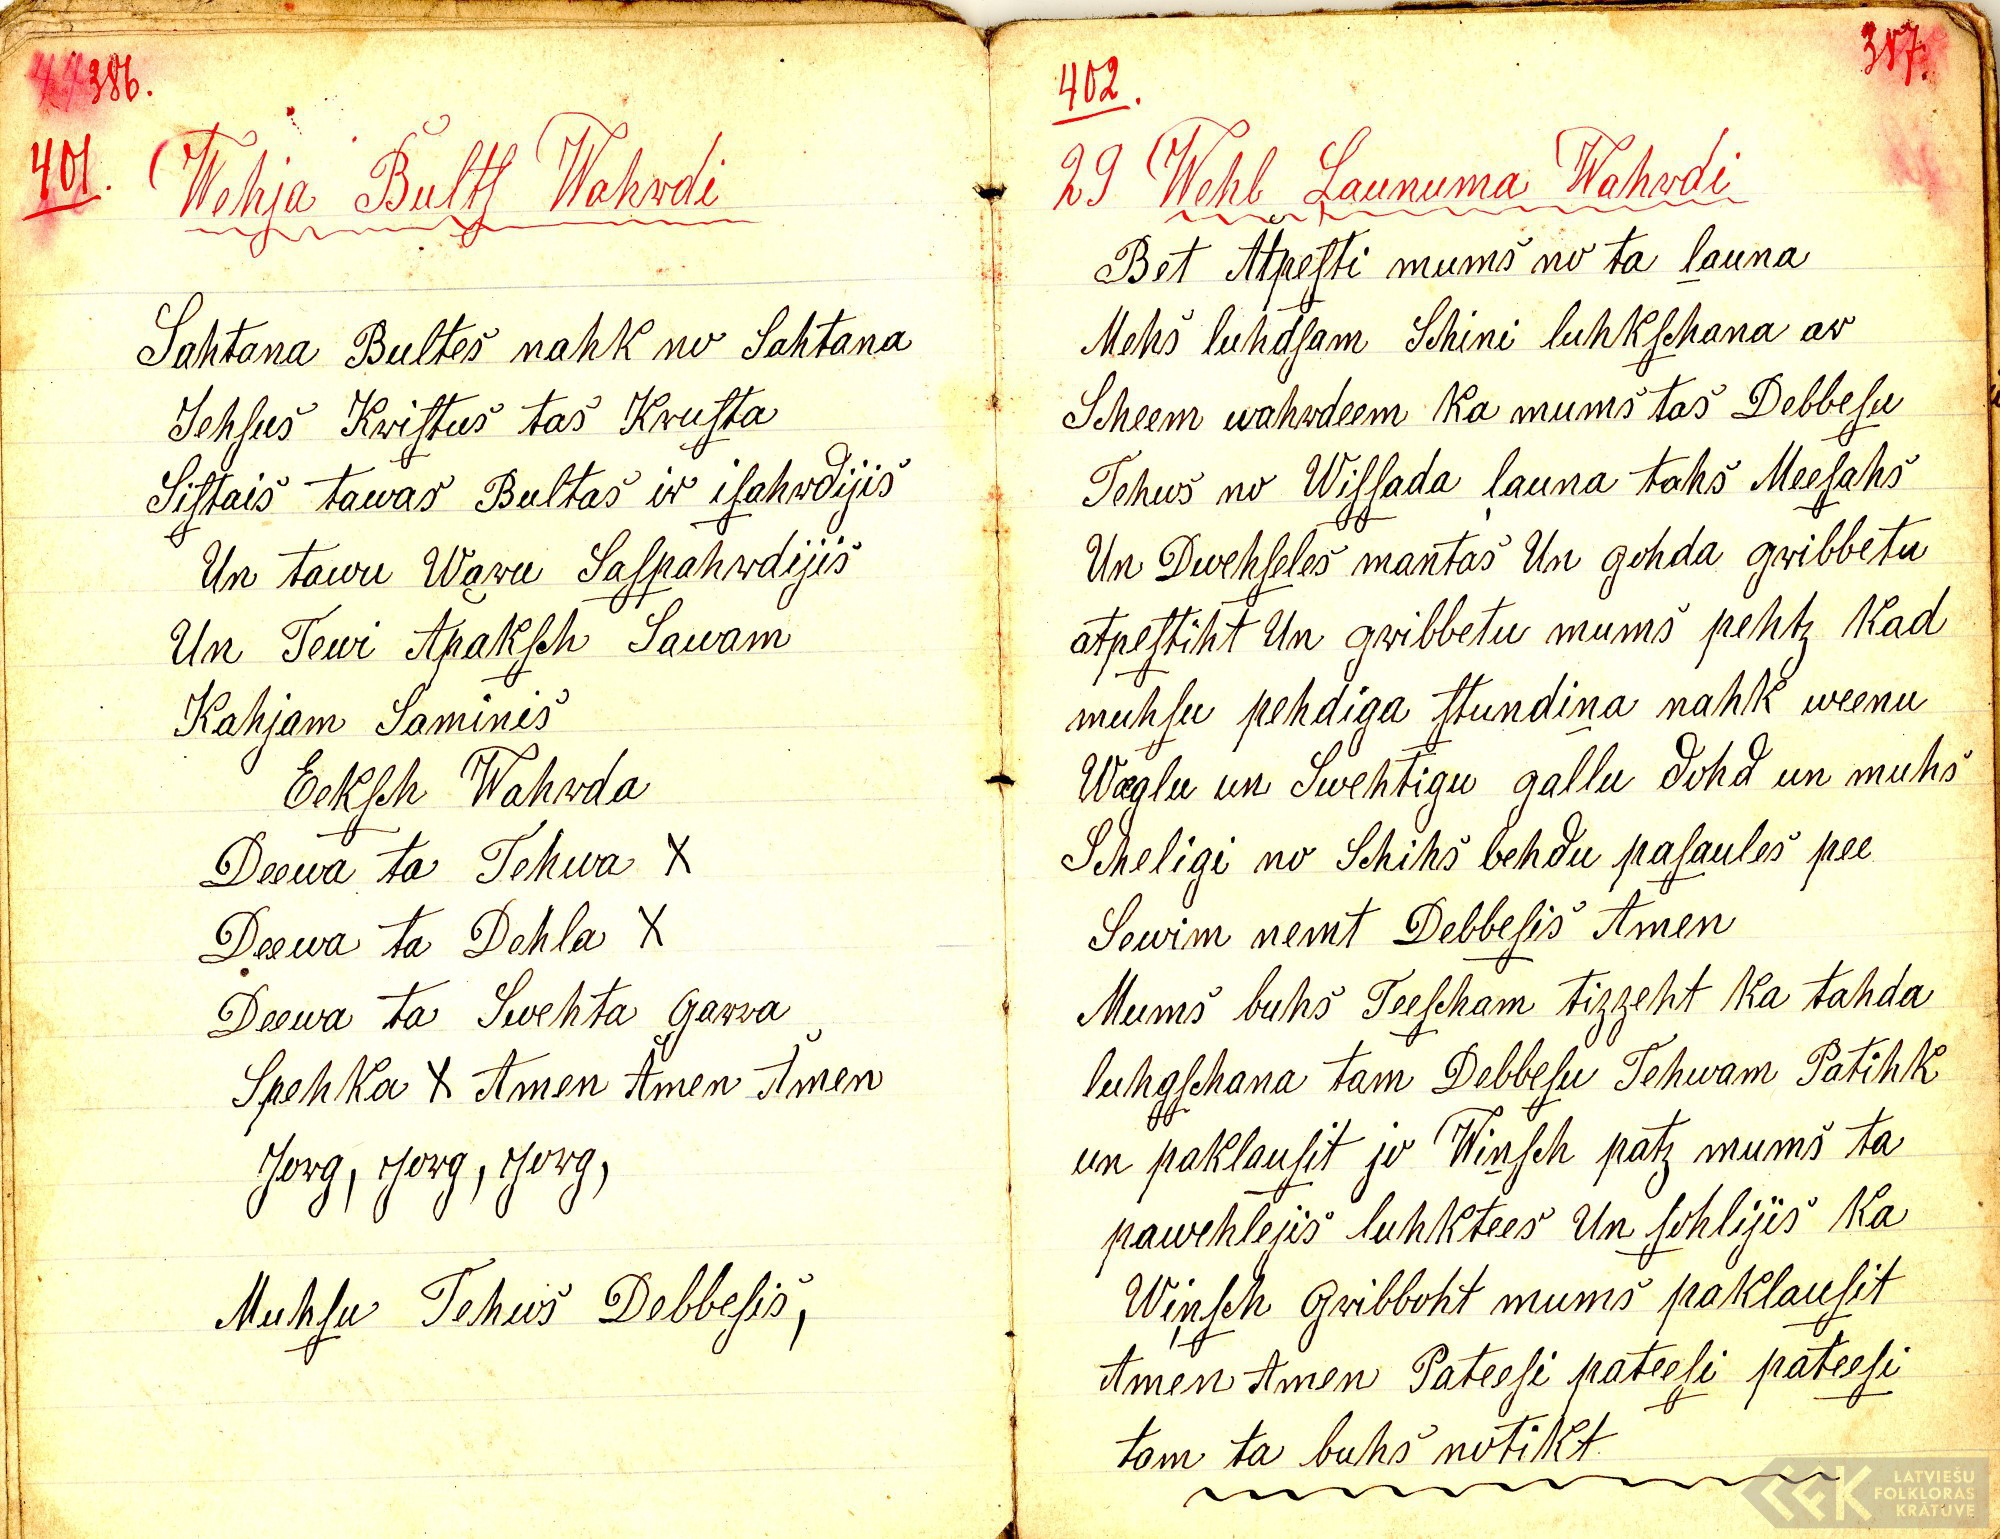 386.
401. Wehja Bultſ Wahrdi
Sahtana Bultes nahk no Sahtana
Jehſus Kriſtus tas Kruſta
Siſtais tawas Bultas ir iſahrdijis
Un tawu Waru Saſpahrdijis
Un Tewi Apakſch Sawam
Kahjam Saminis
Eekſch Wahrda
Deewa ta Tehwa X
Deewa ta Dehla X
Deewa ta Swehta Garra
Spehka X Amen Amen Amen
Jorg, Jorg, Jorg,
Muhſu Tehws Debbeſis,
387.
402.
29 Wehl Launuma Wahrdi
Bet Atpeſti mums no ta launa
Mehs luhdſam Schini luhkſchana ar
Scheem wahrdeem ka mums tas Debbeſu
Tehws no Wiſſada launa tahs Meeſahs
Un Dwehſeles mantas Un gohda gribbetu
atpeſtiht Un gribbetu mums pehtz kad
muhſu pehdiga ſtundina nahk weenu
Waglu un Swehtigu gallu dohd un muhs
Scheligi no Schihs behdu paſaules pee
Sewim nemt Debbeſis Amen
Mums buhs Teeſcham tizzeht ka tahda
luhgſchana tam Debbeſu Tehwam Patihk
un paklauſit jo Winſch patz mums ta
pawehlejis luhktees Un ſohlijis ka
Winſch Gribboht mums paklauſit
Amen Amen Pateeſi pateeſi pateeſi
tam ta buhs notikt.
LFK LATVIEŠU
FOLKLORAS
KRĀTUVE